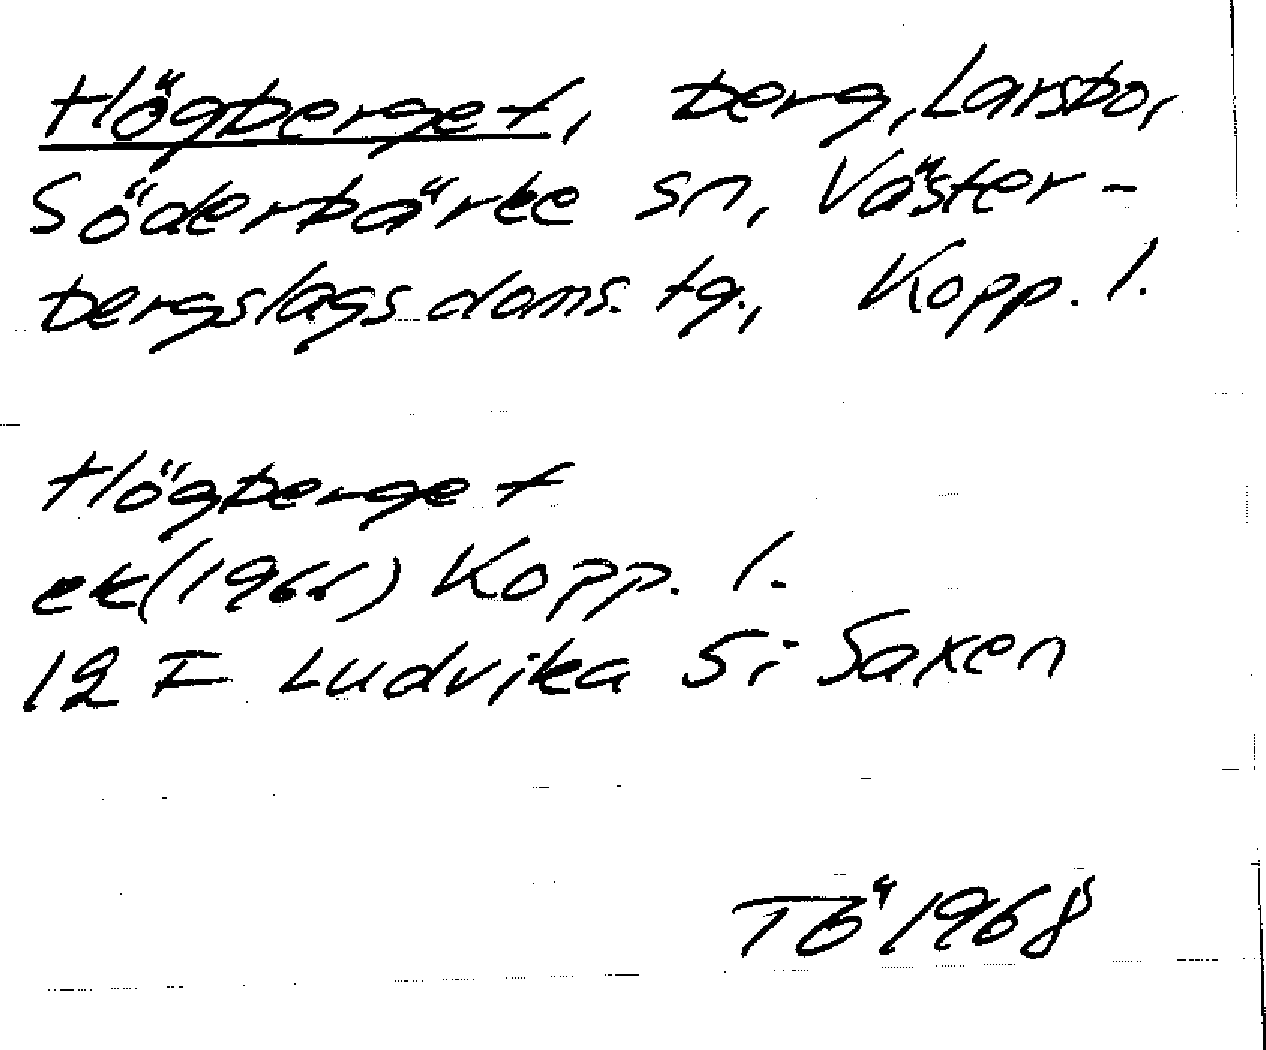 Högberget, berg, Larsbo,
Söderbärke sn, Väster-
bergslags doms. tg., Kopp. l.
Högberget
ek (1966) Kopp. l.
12 F Ludvika S: Saxen
TÖ 1968